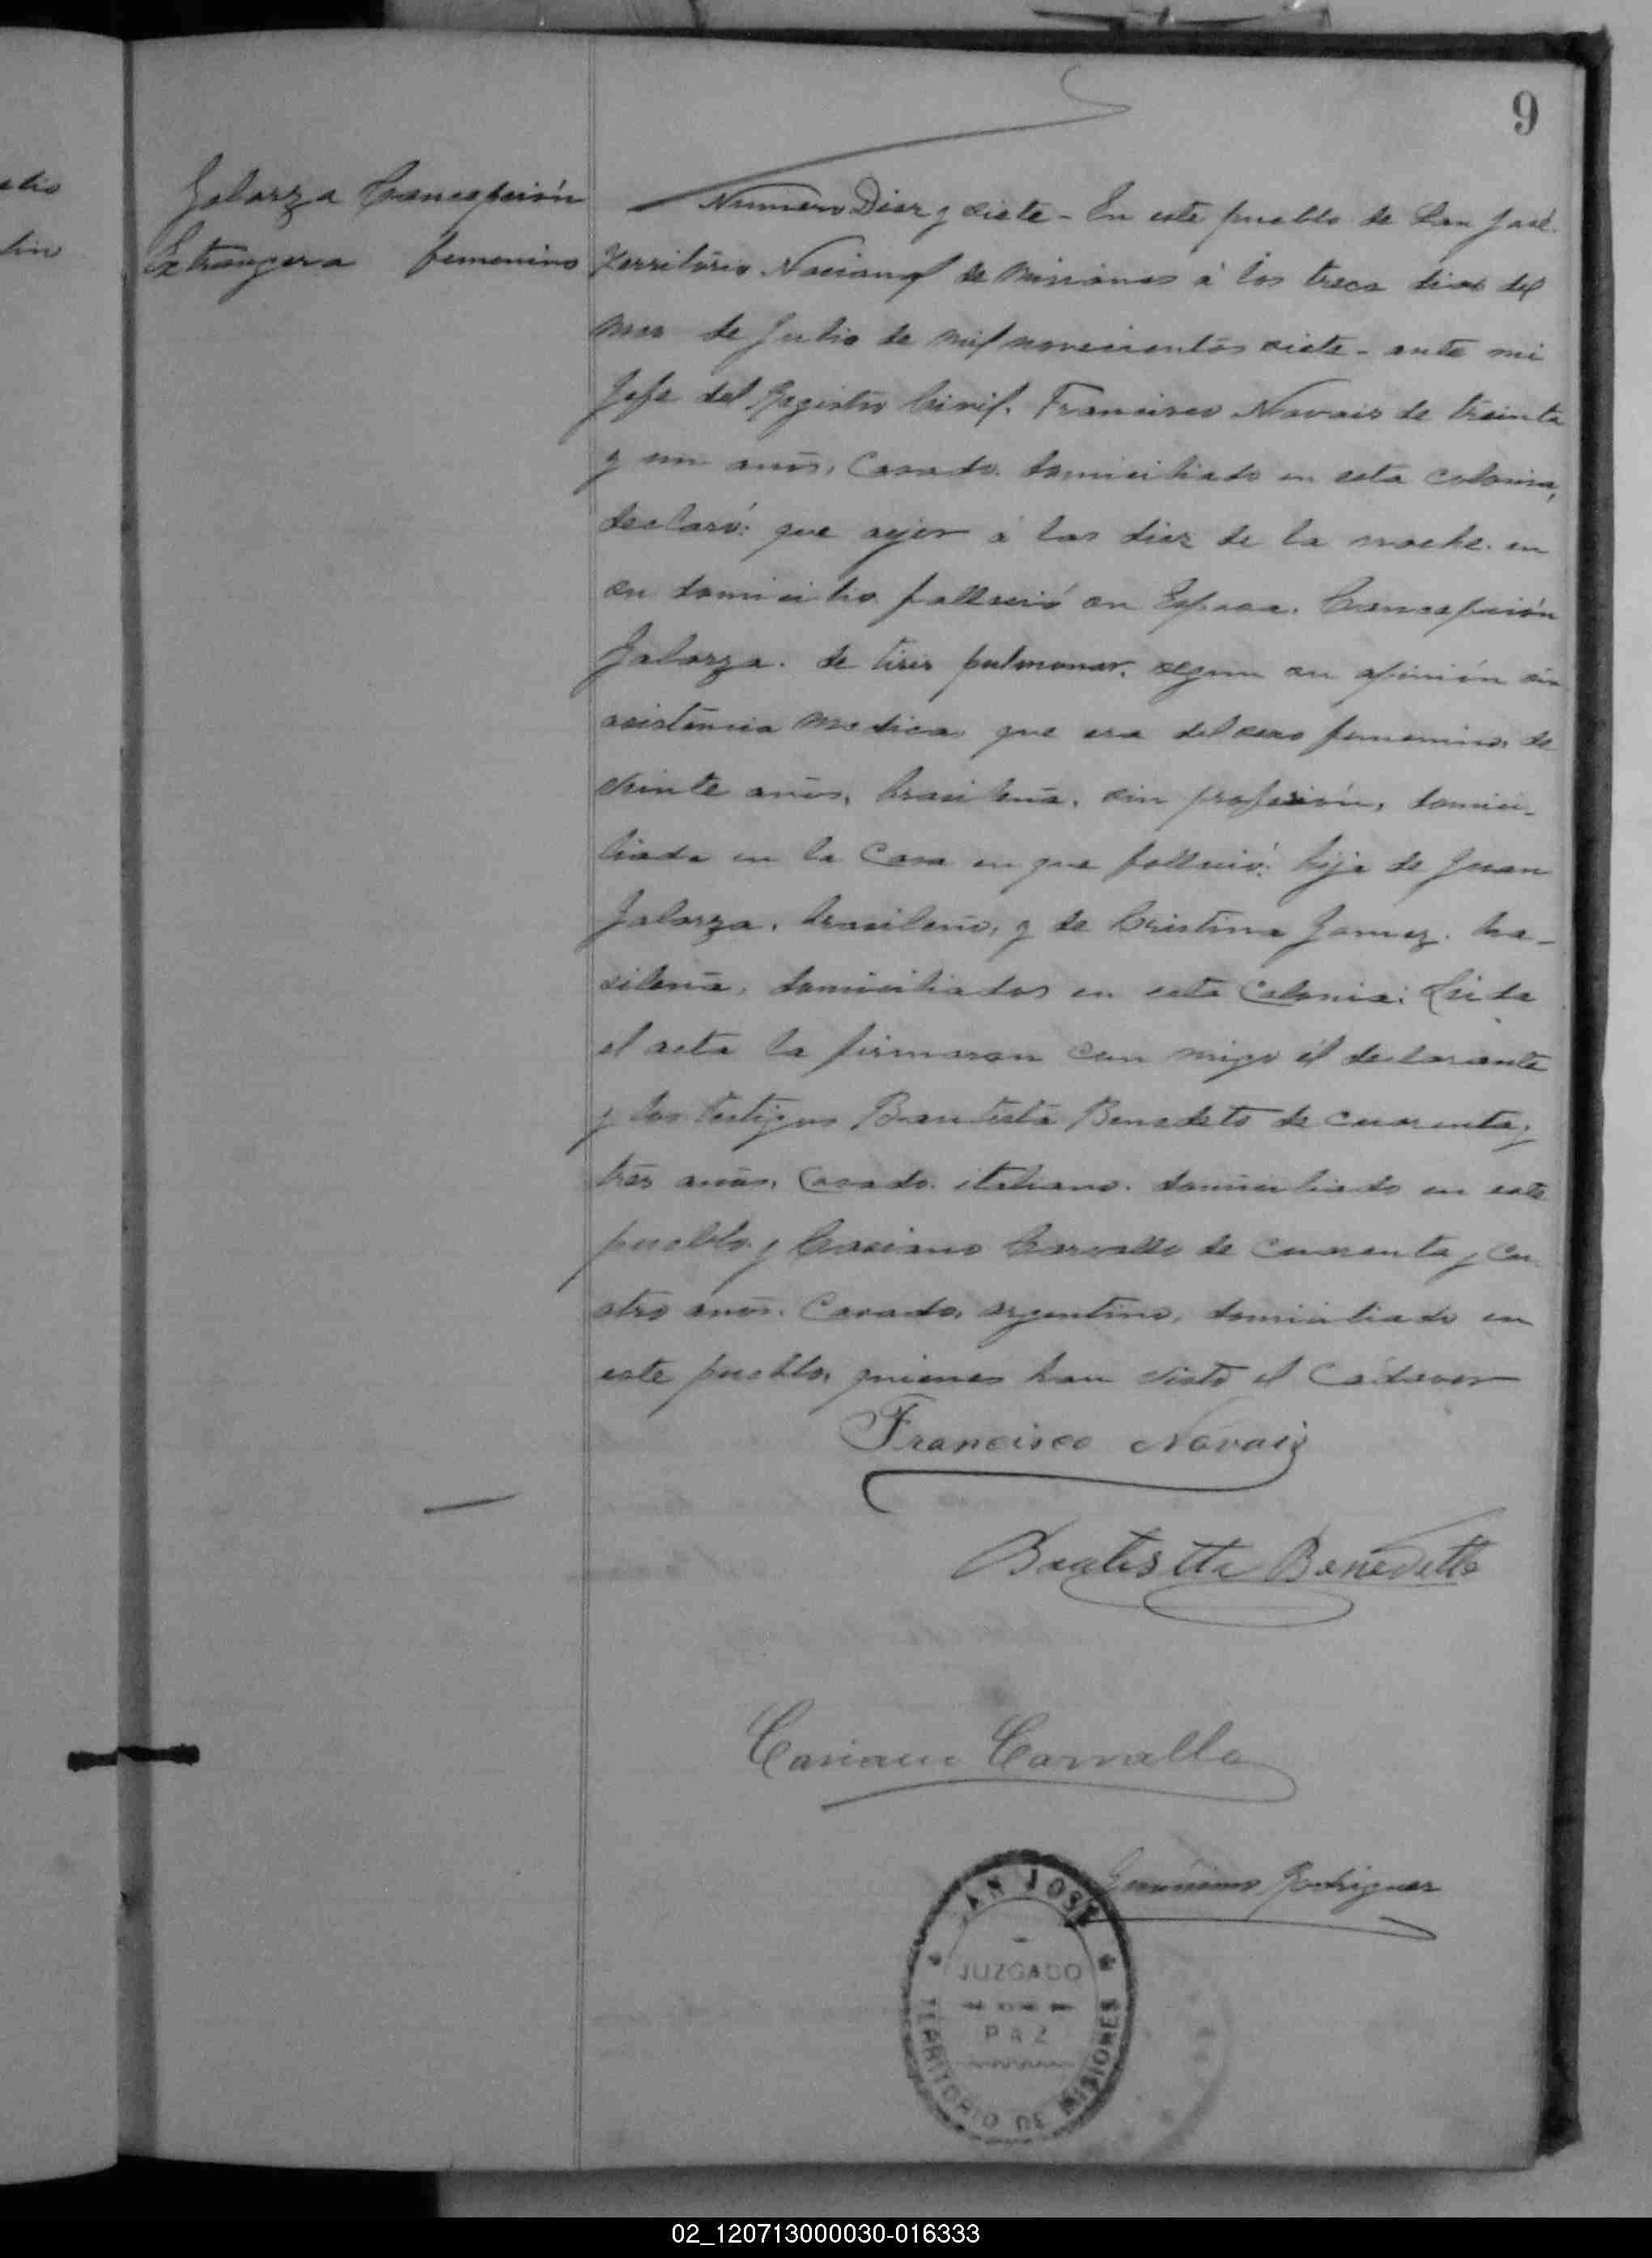 9
Galarza Concepción
Extrangera femenino
Numero Diez y siete - En este pueblo de San José
Territorio Nacional de Misiones á los trece dias del
mes de Julio de mil novecientos siete - ante mi
Jefe del Registro Civil. Francisco Navais de treinta
y un años, Casado. domiciliado en esta colonia,
declaró: que ayer á las diez de la noche. en
su domicilio. falleció su Esposa. Concepción
Galarza. de tisis pulmonar. segun su opinión sin
asistencia medica que era del sexo femenino. de
veinte años, brasileña, sin profesión, domici-
liada en la Casa en que falleció: hija de Juan
Galarza, brasileño, y de Cristina Gomez. bra-
sileña, domiciliados en esta Colonia: Leida
el acta la firmaron con migo el declarante
y los testigos Bautista Benedeto de cuarenta y
tres años, Casado. italiano. domiciliado en este
pueblo y Casiano Carvallo de cuarenta y cu
atro años. Casado, argentino, domiciliado en
este pueblo, quienes han visto el Cadaver
Francisco Navais
Batista Benedetto
Casiano Carvallo
Geronimo Rodriguez
SAN JOSE
JUZGADO
DE
PAZ
TERRITORIO DE MISIONES
02_120713000030-016333